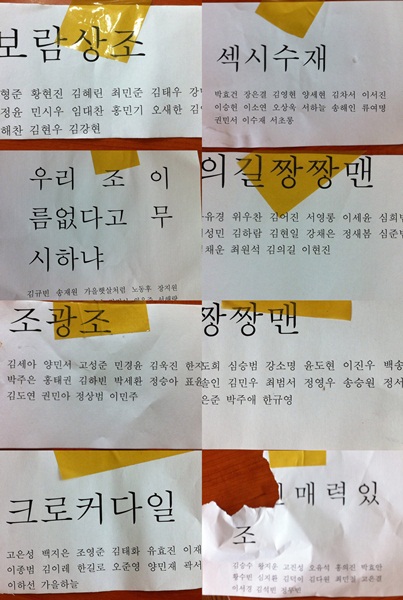 보람상조
형준 황현진 김혜린 최민준 김태우
정윤 민시우 임대찬 홍민기 오새한
해찬 김현우 김강현
섹시수재
박효건 장은결 김영현 양세현 김차서 이서진
이승헌 이소연 오상욱 서하늘 송해인 류여명
권민서 이수재 서초롱
우리 조 이
름없다고 무
시하냐
김규빈 송재원 가을햇살처럼 노동후 장지원
의길짱짱맨
유경 위우찬 김어진 서영롱 이세윤
성민 김하람 김현일 강채은 정새봄 심준
채운 최원석 김의길 이현진
조광조
김세아 양민서 고성준 민경윤 김욱진
박주은 홍태권 김하빈 박세환 정승아
김도연 권민아 정상범 이민주
짱짱맨
도희 심승범 강소명 윤도현 이진우
솔인 김민우 최범서 정영우 송승원 정서
은준 박주애 한규영
크로커다일
고은성 백지은 조영준 김태화 유효진 이재
이종범 김이레 한길로 오준영 양민재 곽서
이하선 가을하늘
매력있
조
김승수 황지윤 고진성 오유석 홍의진 박효만
황수빈 심지환 김덕이 김다원 최민경 고은결
이사경 김석빈